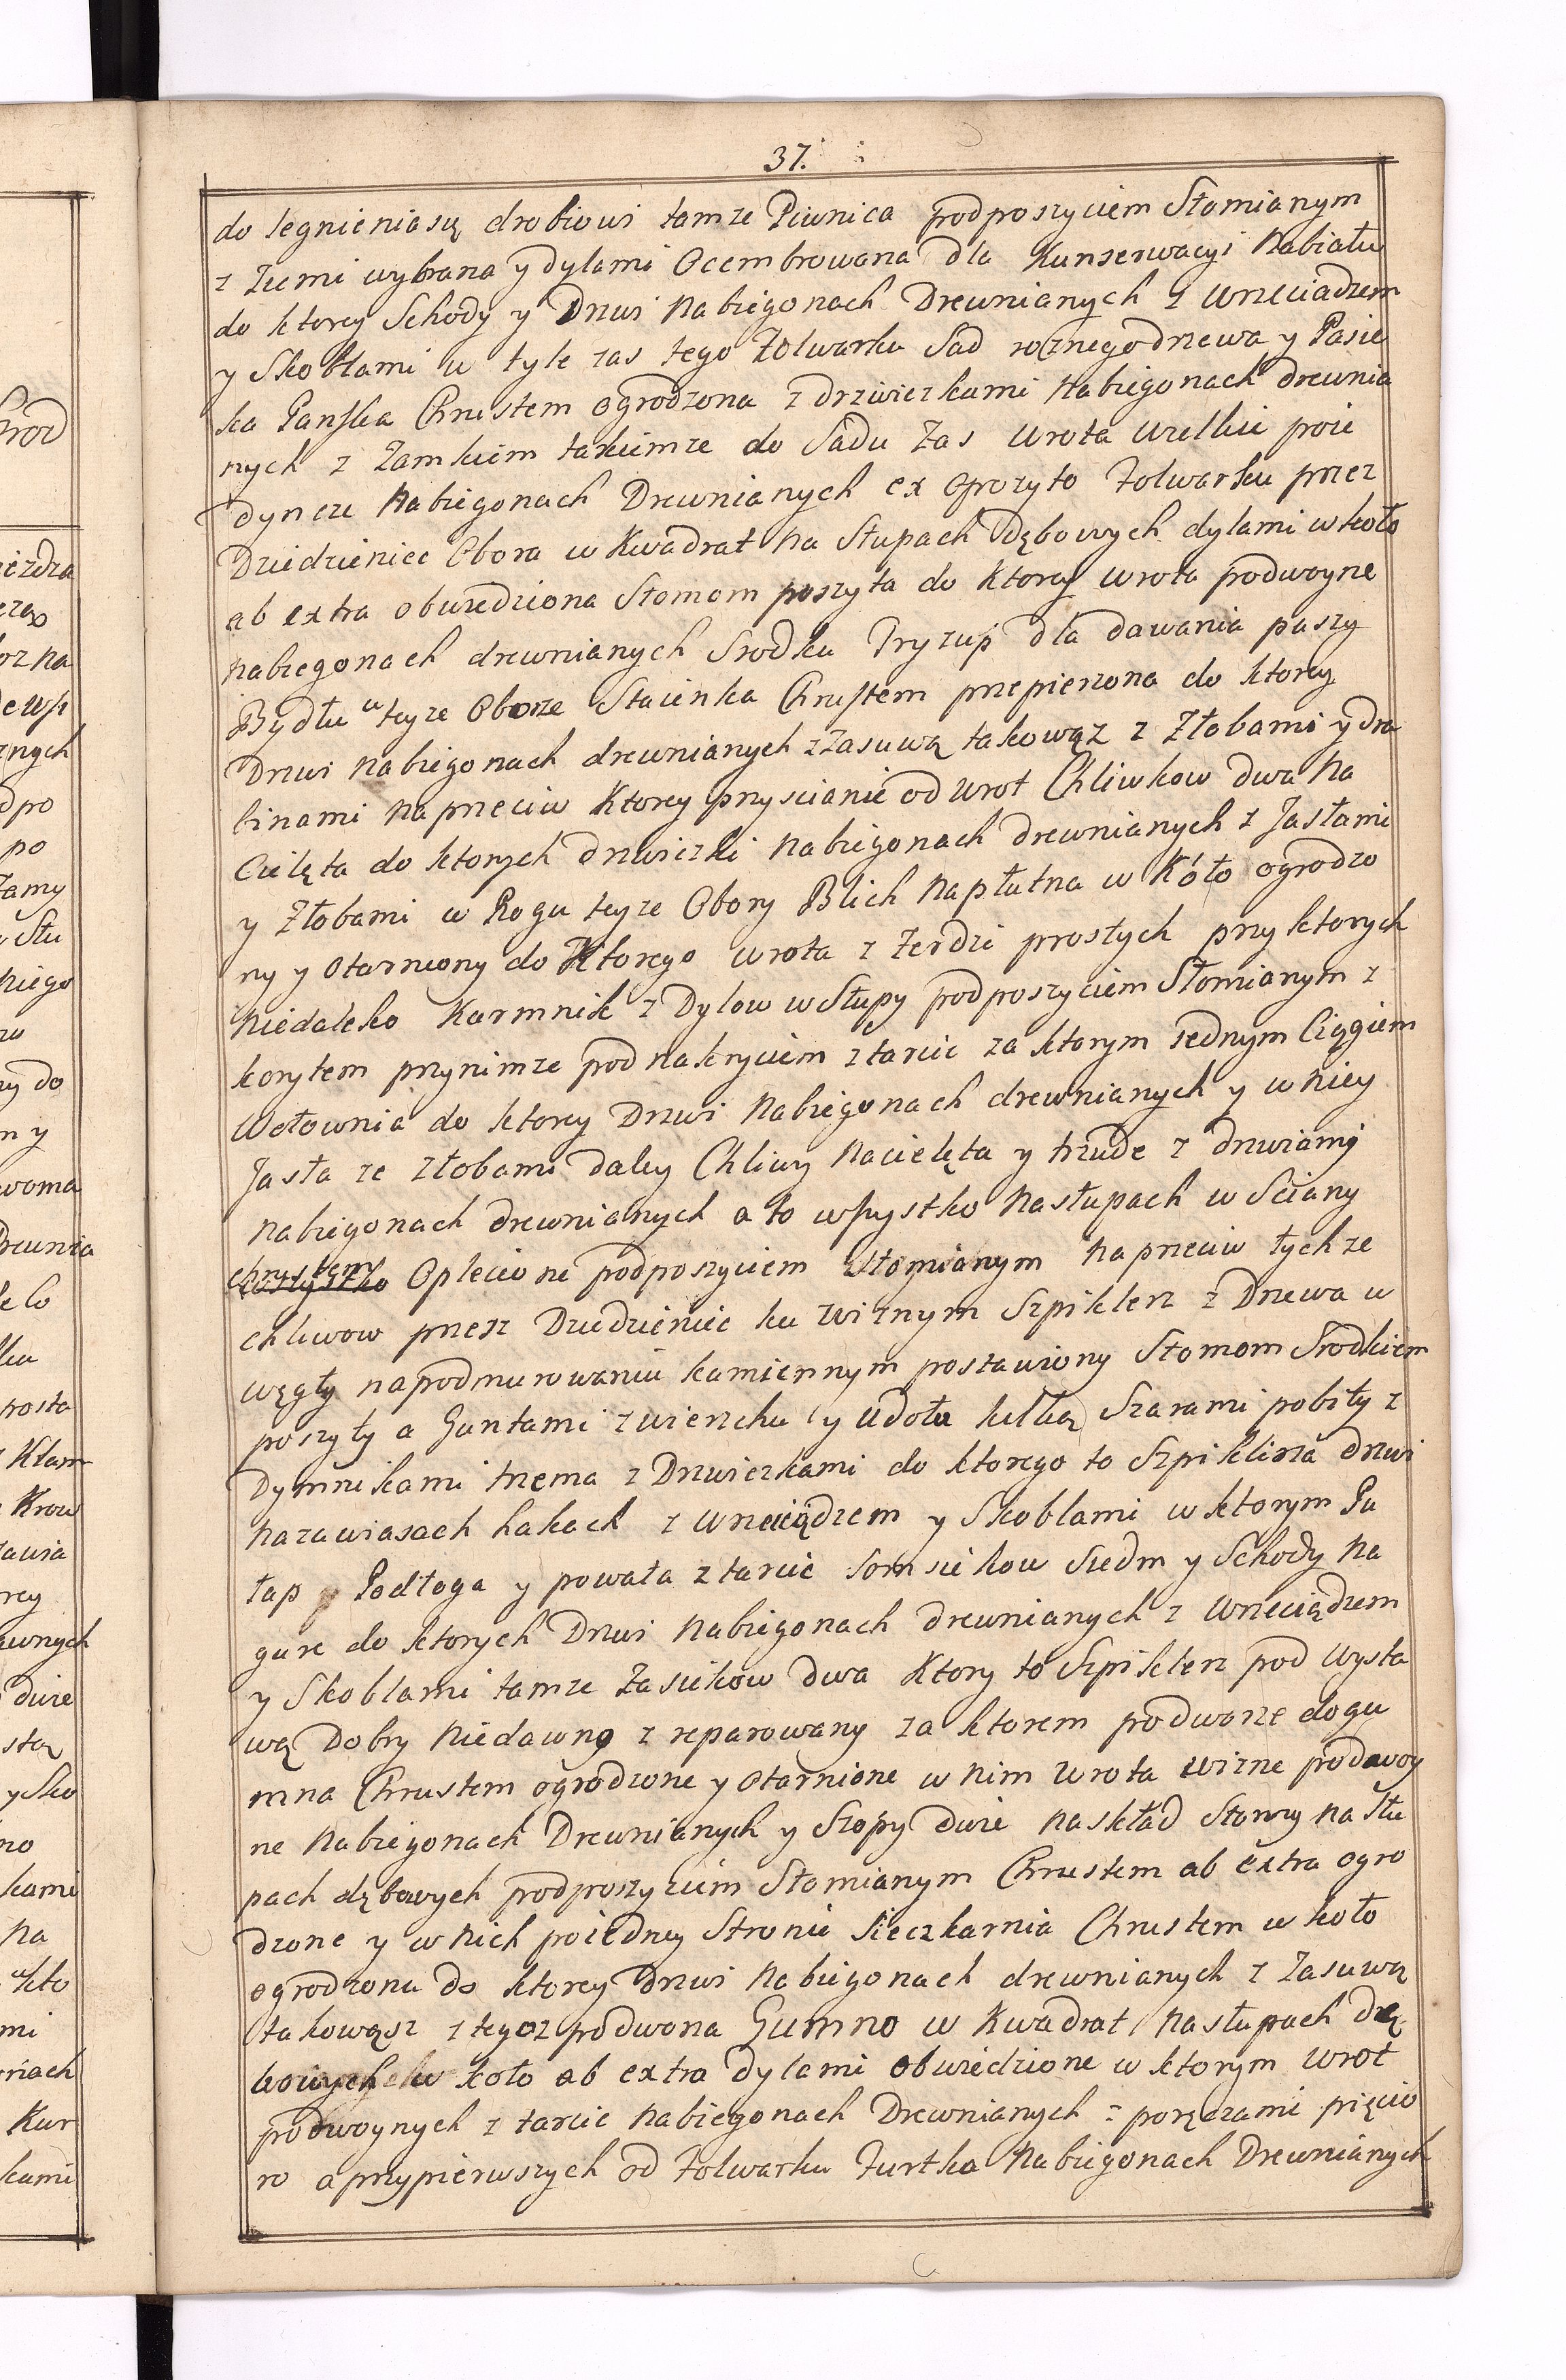 37.
do legnieniasię drobiowi tamze Piwnica podposzyciem Słomianym
z Ziemi wybrana y dylami Ocembrowana dla Kunserwacyi Nabiału
do ktorey Schody y Drzwi Nabiegonach Drewnianych z Wrzeciądzem
y Skoblami w tyle zas tego Folwarku Sad roznegodrzewa y Pasie
ka Panska Chrustem ogrodzona z drzwiczkami Nabiegonach drewnia
nych z Zamkiem takiemze do Sadu Zas Wrota Wielkie poie
dyncze Nabiegonach Drewnianych ex Opozyto Folwarku przez
Dziedziniec Obora w Kwadrat Na Słupach Dębowych dylami wkoło
ab extra obwiedziona Słomom poszyta do Ktorey wrota podwoyne
nabiegonach drewnianych Srodku Przyzup dla dawania paszy
Bydłu w teyze Oborze Staienka Chrustem przepierzona do ktorey
Drzwi Nabiegonach drewnianych zZasuwą takowąz z Złobami y dra
binami Naprzeciw Ktorey przyscianie od Wrot Chliwkow dwa Na
Cielęta do ktorych drzwiczki Nabiegonach drewnianych z Jasłami
y Złobami w Rogu teyze Obory Blich Napłutna w Koło ogrodzo
ny y Otarniony do Ktorego wrota z Zerdzi prostych przyktorych
Niedaleko Karmnik z Dylow wSłupy podposzyciem Słomianym z
korytem przynimze pod nakryciem ztarcic za ktorym Jednym Ciągiem
Wołownia do ktorey Drzwi Nabiegonach drewnianych y wNiey
Jasła ze Złobami daley Chliwy Nacielęta y trzode z drzwiami
Nabiegonach drewnianych a to wszystko Nasłupach w Sciany
chrustem Oplecione podposzyciem Słomianym Naprzeciw tychze
chliwow przesz Dziedziniec ku Wiznym Szpiklerz z Drzewa w
węgły napodmurowaniu kamiennym postawiony Słomom Srodkiem
poszyty a Guntami zwierzchu y Udołu kilką Szarami pobity z
Dymnikami trzema z Drzwiczkami do ktorego to Szpiklirza drzwi
Nazawiasach hakach z Wrzeciądzem y Skoblami w ktorym Pu
łap Podłoga y powała ztarcic Somsiekow Siedm y Schody Na
gure do ktorych Drzwi Nabiegonach drewnianych z Wrzeciądzem
y Skoblami tamze Zasiekow dwa Ktory to Szpiklerz pod Wysta
wą Dobry Niedawno zreparowany za ktorem podworze dogu
mna Chrustem ogrodzone y Otarnione w Nim Wrota Wizne podwoy
ne Nabiegonach Drewnianych y Szopy dwie Naskład Słomy Na Słu
pach dębowych podposzyciem Słomianym Chrustem ab extra ogro
dzone y w Nich poiedney Stronie Sieczkarnia Chrustem w koło
ogrodzona do ktorey Drzwi Nabiegonach drewnianych z Zasuwą
takowąsz z tegoz podworza Gumno w Kwadrat Nasłupach Dę
bowych w koło ab extra dylami obwiedzione w ktorym Wrot
podwoynych z tarcic Nabiegonach Drewnianych z poręczami pięcio
ro a przypierwszych od Folwarku Furtka Nabiegonach Drewnianych